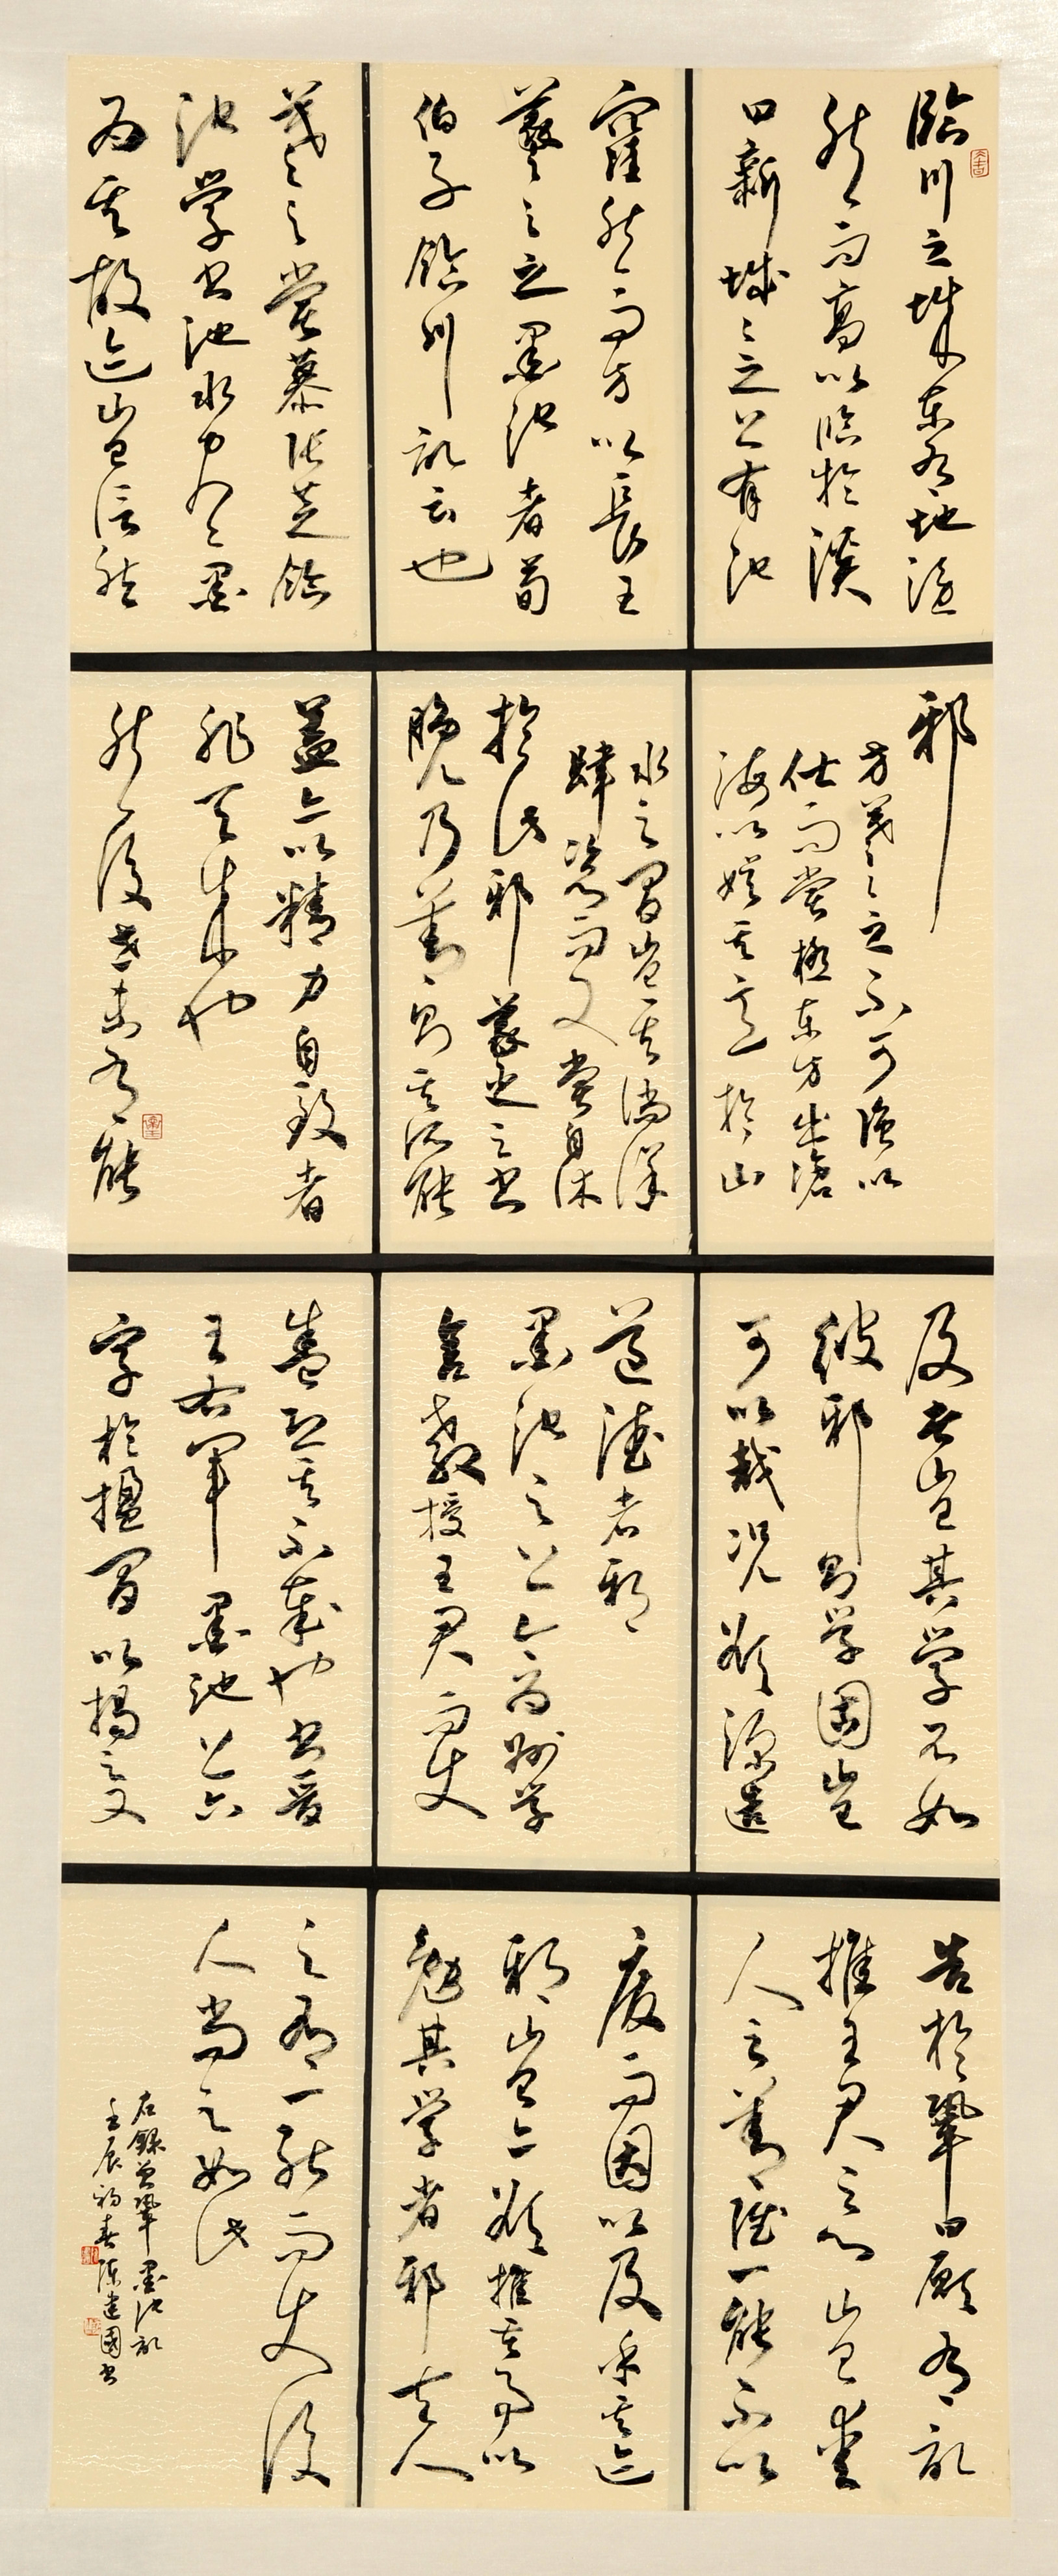 臨川之城東有地隱
然而高以臨於溪
曰新城々之上有池
窪然而方以長王
羲之之墨池者荀
伯子臨川記云也
羲之嘗慕張芝臨
池學書池水盡黑
為其故迹豈信然
邪
方羲之之不可強以
仕而嘗極東方出滄
海以娛其意於山
水之間豈其徜徉
肆恣而又嘗自休
於此邪羲之之書
晚乃善則其所能
蓋亦以精力自致者
非天成也
然後世未有能
及者豈其學不如
彼邪則學固豈
可以哉況欲深造
道德者邪
墨池之上今為州學
舍教授王君而
盛恐其不章也書晉
王右軍墨池之六
字於楹間以揭之又
告於鞏曰願有記
推王君之心豈愛
人之善雖一能不以
廢而因以及乎其迹
邪豈亦欲推其事以
勉其學者邪夫人
之有一能而使後
人尚之如此
右錄曾鞏墨池記
壬辰初春陳建國書